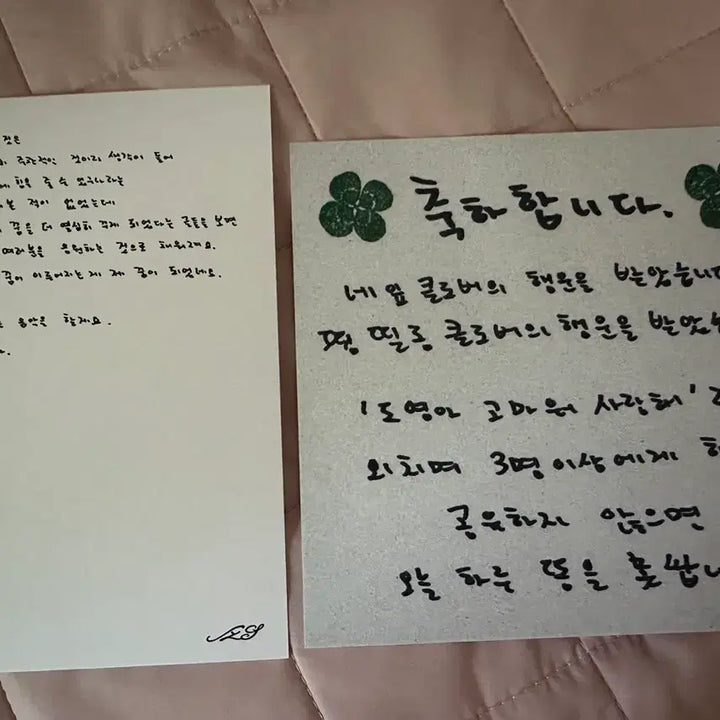 것은
주관적인 것이라 생각이 들어
에 힘을 줄 수 있구나라는
적이 없었는데
꿈을 더 열심히 꾸게 되었다는 글들을 보면
여러분을 응원하는 것으로 채워져요.
꿈이 이루어지는게 제 꿈이 되었네요.
음악을 할게요.
축하합니다.
네잎클로버의 행운을 받았습니다
떵 띨롱 클로버의 행운을 받았
'도영아 고마워 사랑해'
외치며 3명 이상에게
공유하지 않으면
오늘 하루 똥을 못쌉니